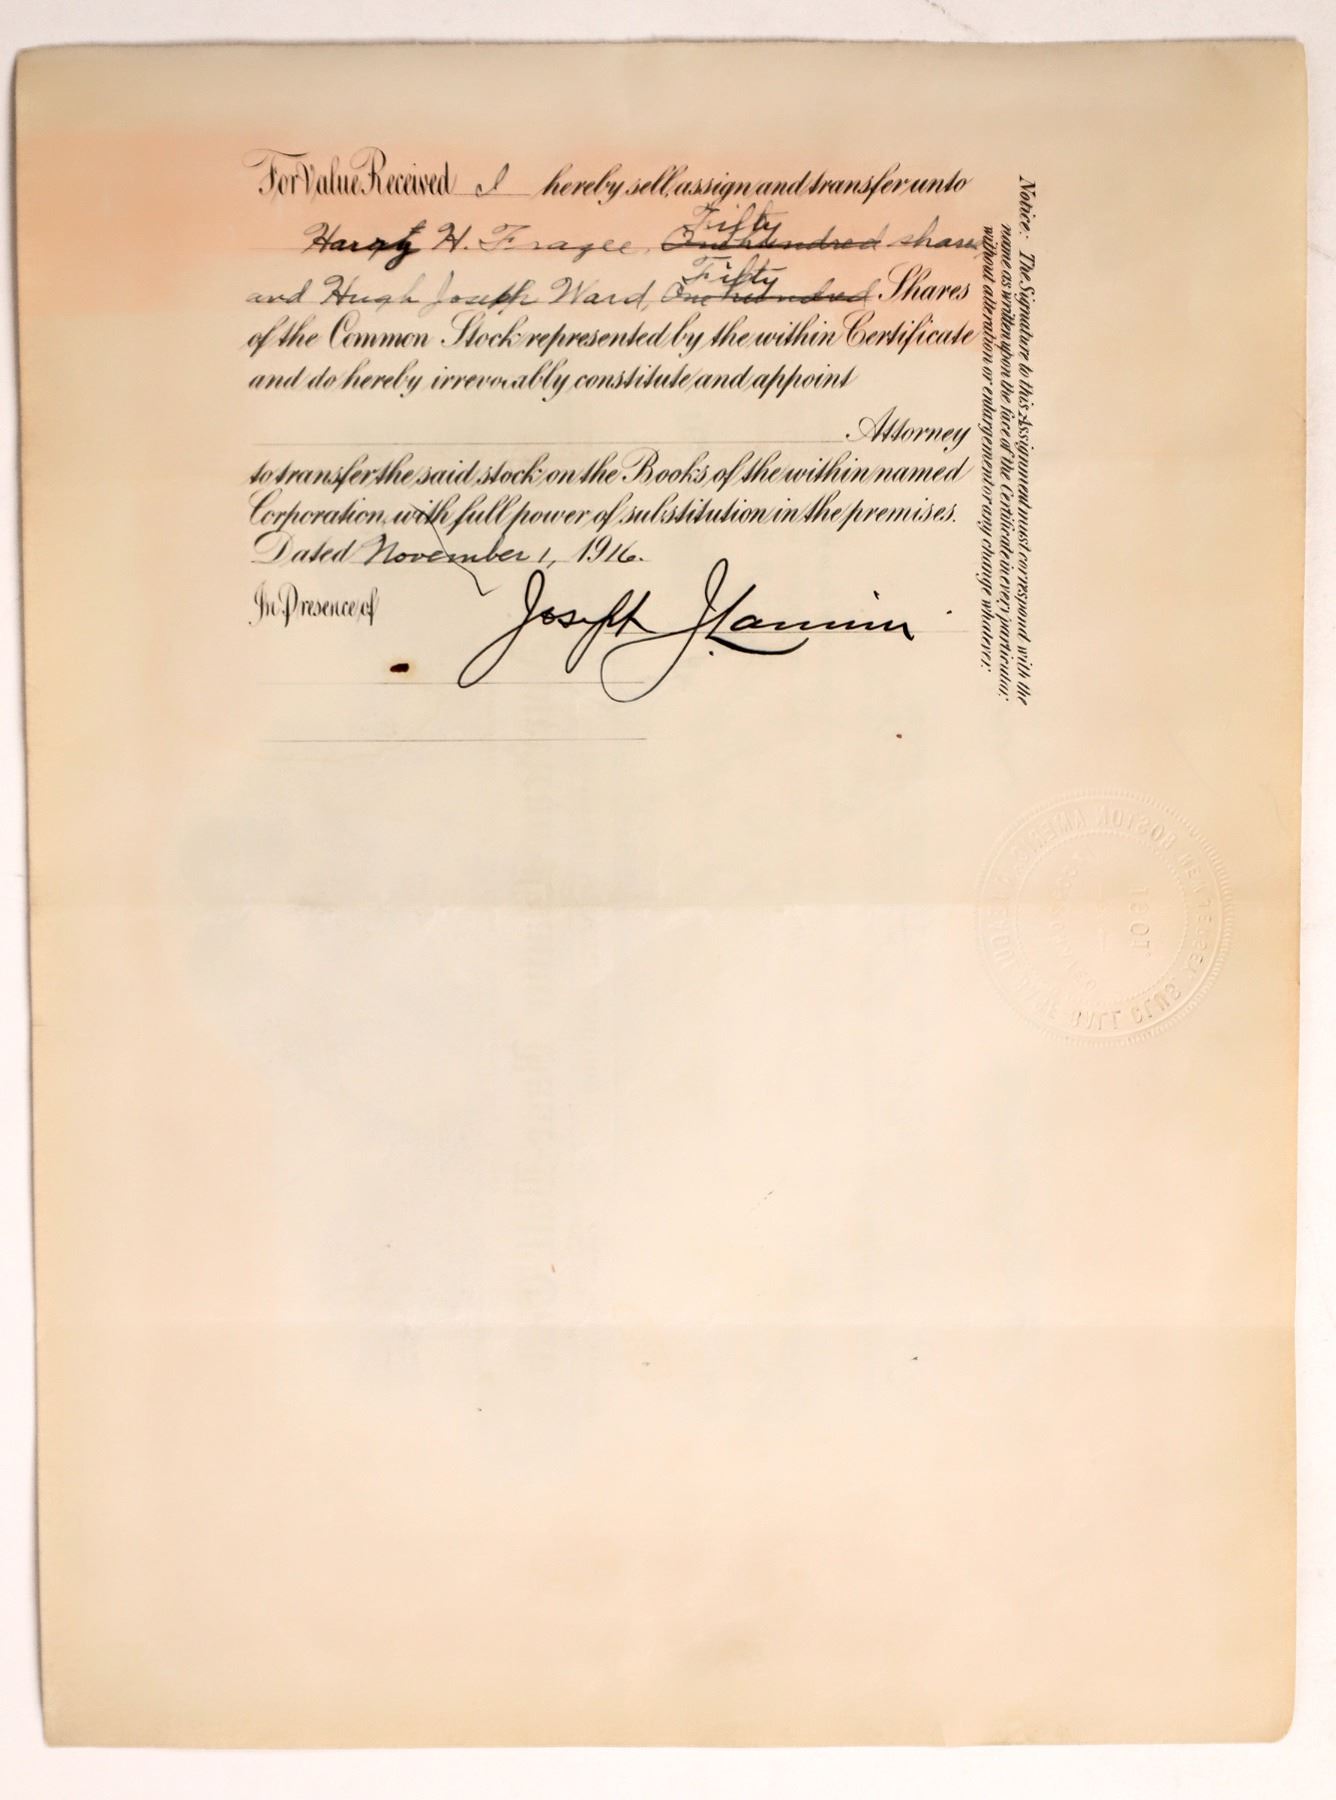 For Value Received I hereby sell, assign and transfer unto
Harry H. Frazee, Fifty One hundred shares
and Hugh Joseph Ward, Fifty One hundred Shares
of the Common Stock represented by the within Certificate
and do hereby irrevocably constitute and appoint
Attorney
to transfer the said stock on the Books of the within named
Corporation, with full power of substitution in the premises.
Dated November 1, 1916.
In Presence of
Joseph J Lannin
Notice: The Signature to this Assignment must correspond with the
name as written upon the face of the Certificate in every particular,
without alteration or enlargement or any change whatever.
BOSTON AMERICAN LEAGUE BASE BALL CLUB
NEW JERSEY
1901